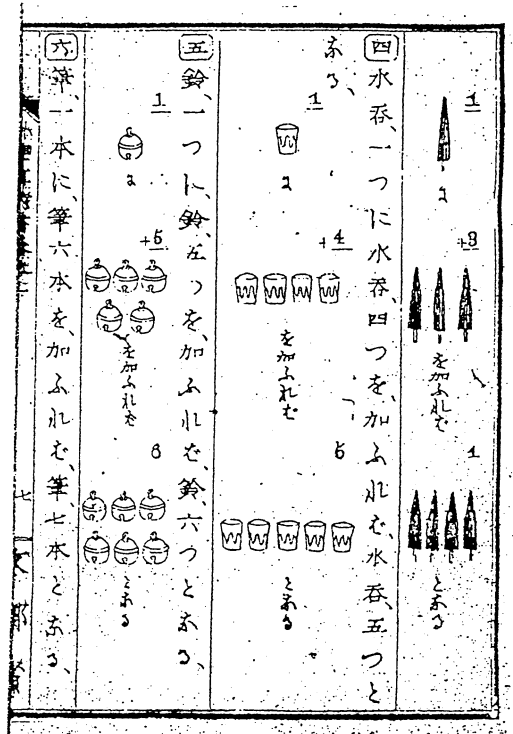 1 に +3 を加ふれば 4 となる
四 水呑、一つに水呑、四つを、加ふれば、水呑、五つと
なる、
1 に +4 を加ふれば 5 となる
五 鈴、一つに、鈴、五つを、加ふれば、鈴、六つとなる、
1 に +5 を加ふれば 6 となる
六 筆、一本に、筆六本を、加ふれば、筆、七本となる、
七 文部省